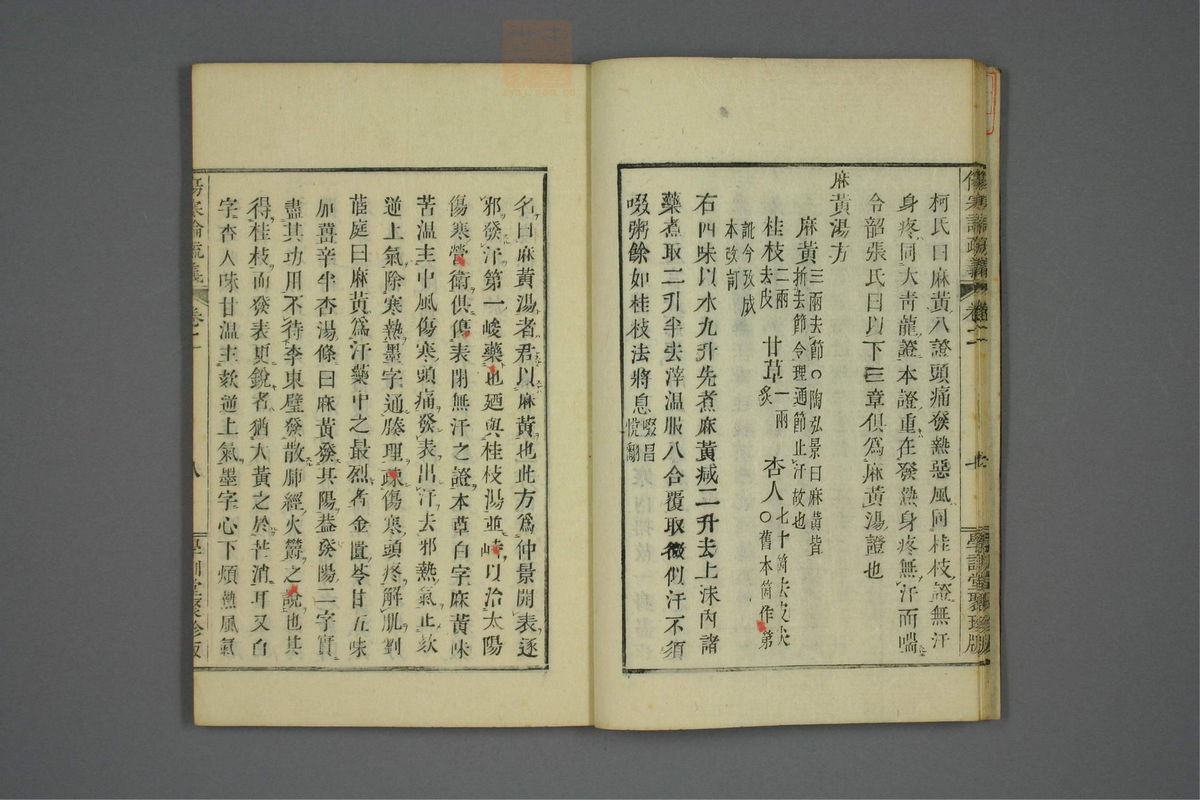 柯氏曰麻黃八證頭痛發熱惡風同桂枝證無汗
身疼同大青龍證本證重在發熱身疼無汗而喘
令韶張氏曰以下三章俱爲麻黃湯證也
麻黃湯方
麻黃三兩去節〇陶弘景曰麻黃皆折去節令理通節止汗故也
桂枝二兩去皮 甘草一兩炙 杏人七十箇去皮尖〇舊本箇作箇訛今攷成本改訂
右四味以水九升先煮麻黃減二升去上沫內諸
藥煮取二升半去滓溫服八合覆取微似汗不須
啜粥餘如桂枝法將息啜昌悅翻
傷寒論疏義 卷二 學訓堂聚珍版
名曰麻黃湯者君以麻黃也此方爲仲景開表逐
邪發汗第一峻藥也廼與桂枝湯並峙以治太陽
傷寒營衛俱傷表閉無汗之證本草白字麻黃味
苦溫主中風傷寒頭痛發表出汗去邪熱氣止欬
逆上氣除寒熱墨字通腠理疎傷寒頭疼解肌劉
茝庭曰麻黃爲汗藥中之最烈者金匱苓甘五味
加薑辛半杏湯條曰麻黃發其陽葢發陽二字實
盡其功用不待李東璧發散肺經火鬱之說也其
得桂枝而發表更銳者猶大黃之於芒消耳又白
字杏人味甘溫主欬逆上氣墨字心下煩熱風氣
傷寒論疏義 卷二 八 學訓堂聚珍版